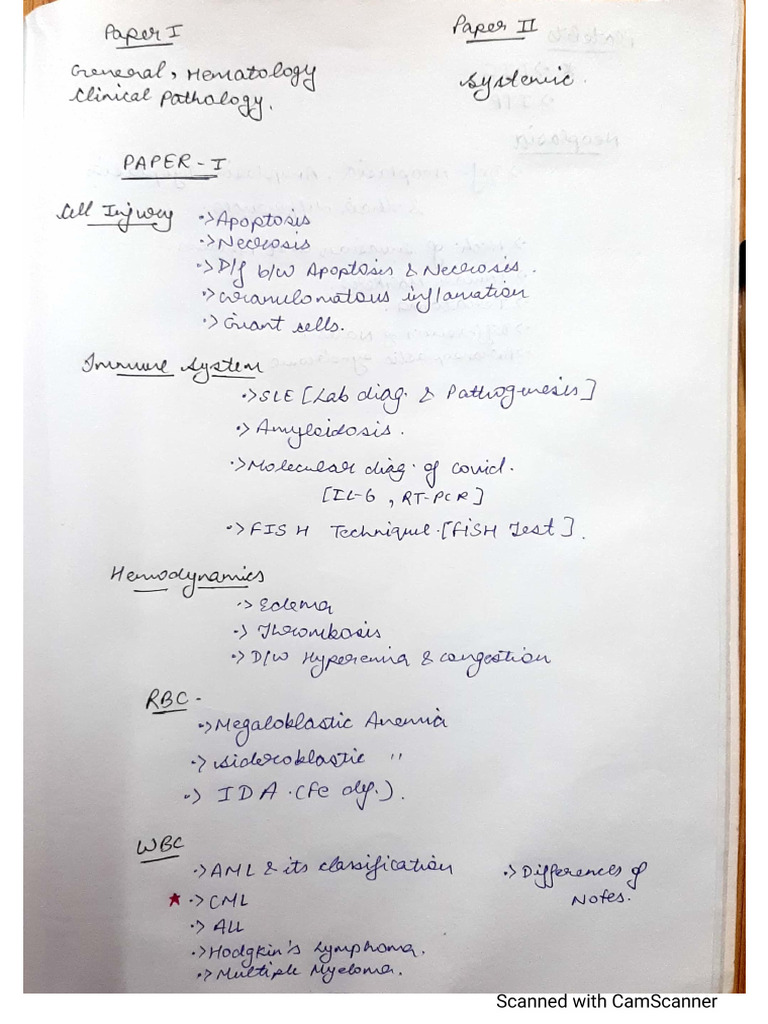 Paper I
General, Hematology
Clinical Pathology.
Paper II
Systemic.
PAPER - I
Cell Injury
·> Apoptosis
·> Necrosis
·> D/f b/w Apoptosis & Necrosis.
·> Granulomatous inflamation
·> Giant sells.
Immune System
·> SLE [Lab diag. & Pathogenesis]
·> Amyloidosis.
·> Molecular diag. of covid.
[IL-6, RT-PCR]
·> FISH Technique. [FISH Test].
Hemodynamics
·> Edema
·> Thrombosis
·> D/W Hyperemia & congestion
RBC -
·> Megaloblastic Anemia
·> sideroblastic "
·> IDA. (Fe dy.).
WBC
·> AML & its classification
★ ·> CML
·> ALL
·> Hodgkin's Lymphoma.
·> Multiple Myeloma.
·> Differences of
Notes.
Neoplasia
Scanned with CamScanner